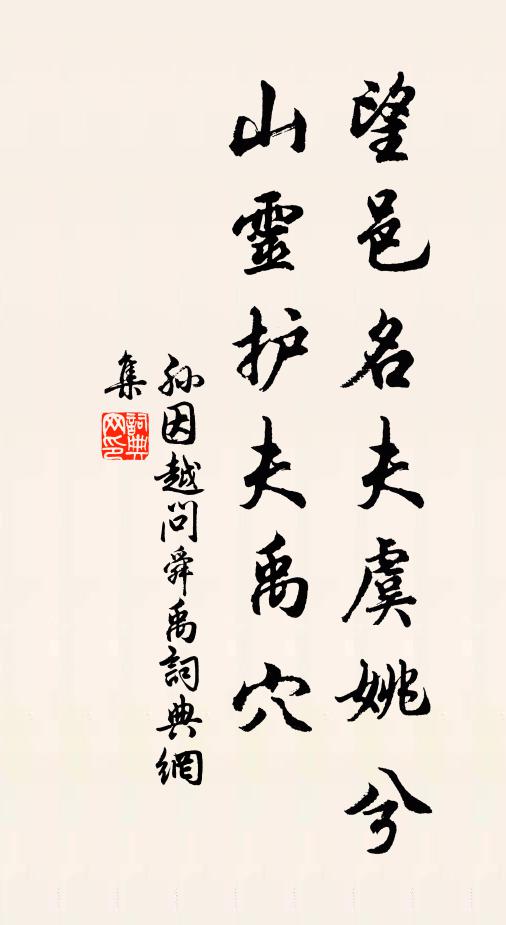 望邑名夫虞姚兮
山靈护夫禹穴
孙因越问舜禹詞典網
集
詞典
网印